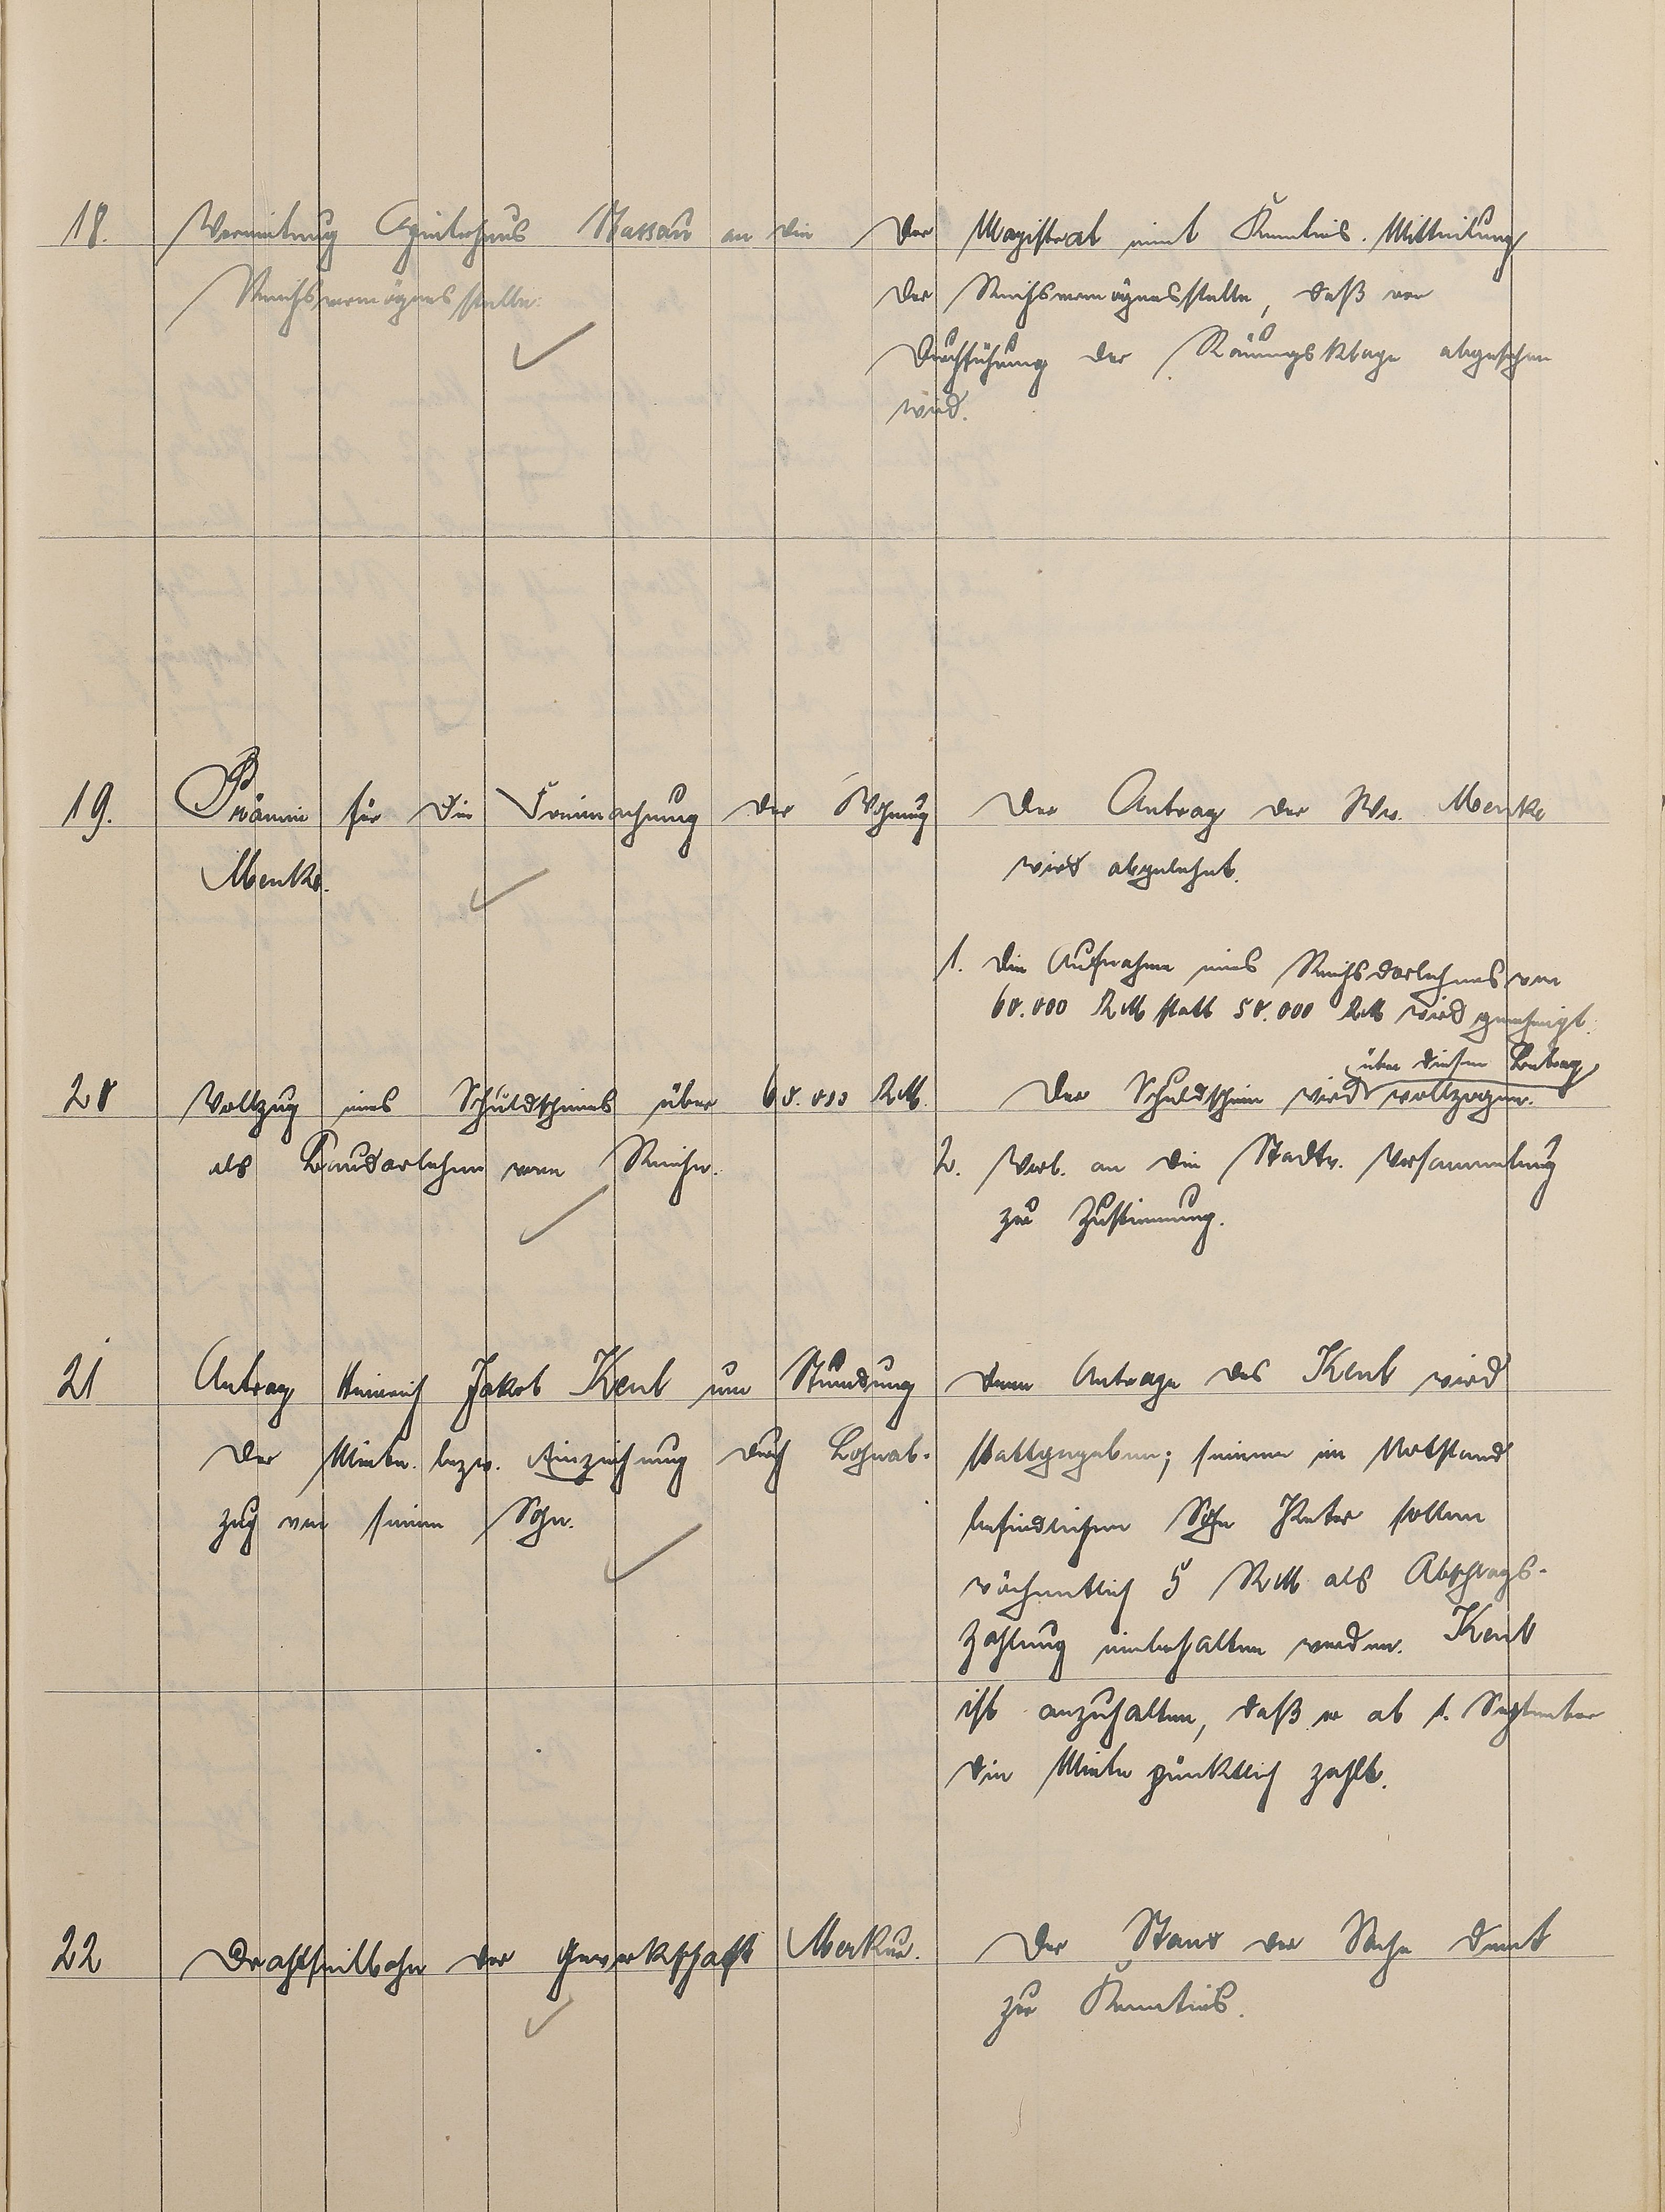 18. Vermietung Agnitushaus Nassau an die
Reichsvermögensstelle.
Der Magistrat nimt Kenntnis. Mitteilung
der Reichsvermögensstelle, daß von
Durchführung der Räumungsklage abgesehen
wird.
19. Prämie für die Freimachung der Wohnung
Menke.
Der Antrag der Ww. Menke
wird abgelehnt.
20 Vollzug eines Schuldscheines über 60.000 RM.
als Baudarlehen vom Reiche.
1. Die Aufnahme eines Reichsdarlehnes von
60.000 RM statt 50.000 RM wird genehmigt.
über diesen Betrag
Der Schuldschein wird vollzogen.
2. Vorl. an die Stadtv. Versammlung
zur Zustimmung.
21 Antrag Heinrich Jakob Kent um Stundung
der Miete bezw. Einziehung durch Lohnab-
zug von seinem Sohn.
Dem Antrage des Kent wird
stattgegeben; seinem im Notstand
befindlichen Sohn Peter sollen
wöchentlich 5 RM als Abschlags-
zahlung einbehalten werden. Kent
ist anzuhalten, daß er ab 1. September
die Miete pünktlich zahlt.
22 Drahtseilbahn der Gewerkschaft Merkur.
Der Stand der Sache dient
zur Kenntnis.